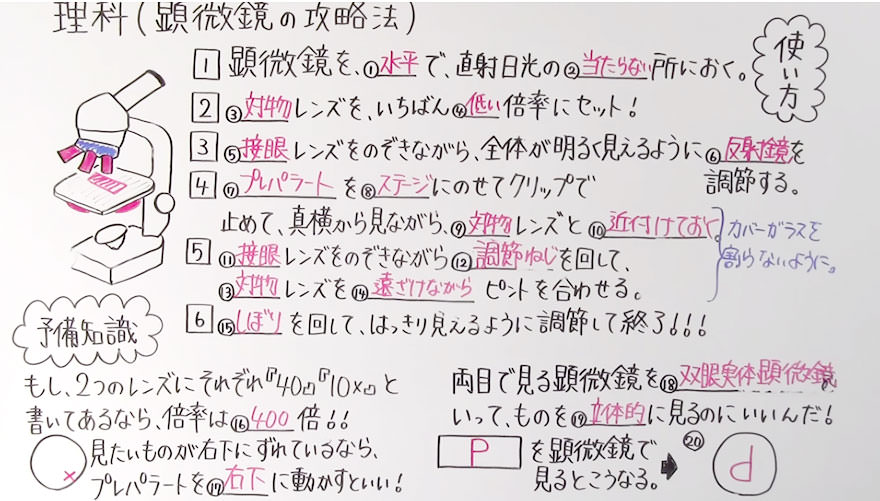 理科(顕微鏡の攻略法)
使い方
1 顕微鏡を、①水平で、直射日光の②当たらない所におく。
2 ③対物レンズを、いちばん④低い倍率にセット!
3 ⑤接眼レンズをのぞきながら、全体が明るく見えるように⑥反射鏡を
調節する。
4 ⑦プレパラートを⑧ステージにのせてクリップで
止めて、真横から見ながら、⑨対物レンズと⑩近付けておく。
カバーガラスを
割らないように。
5 ⑪接眼レンズをのぞきながら⑫調節ねじを回して、
⑬対物レンズを⑭遠ざけながらピントを合わせる。
6 ⑮しぼりを回して、はっきり見えるように調節して終了!!!
予備知識
もし、2つのレンズにそれぞれ『40』『10×』と
書いてあるなら、倍率は⑯400倍!!
見たいものが右下にずれているなら、
プレパラートを⑰右下に動かすといい!
両目で見る顕微鏡を⑱双眼実体顕微鏡と
いって、ものを⑲立体的に見るのにいいんだ!
P を顕微鏡で
見るとこうなる。
⑳
d